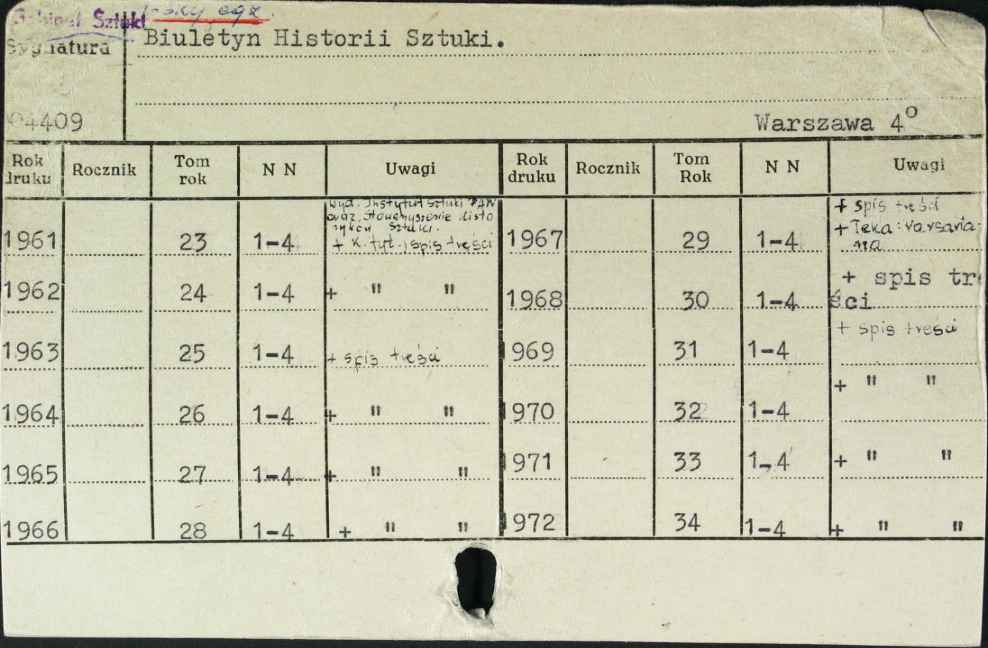 Gabinet Sztuki I-szy egz.
Sygnatura
Biuletyn Historii Sztuki.
04409
Warszawa 4°
Rok druku Rocznik Tom rok N N Uwagi Rok druku Rocznik Tom Rok N N Uwagi
wyd. Instytut Sztuki PAN
oraz Stowarzyszenie Histo
ryków Sztuki.
1961 23 1-4 + k. tyt. i spis treści 1967 29 1-4 + spis treści
+ Teka:
1962 24 1-4 + " " 1968 30 1-4 + spis tre
ści
1963 25 1-4 + spis treści 1969 31 1-4 + spis treści
1964 26 1-4 + " " 1970 32 1-4 + " "
1965 27 1-4 + " " 1971 33 1-4 + " "
1966 28 1-4 + " " 1972 34 1-4 + " "